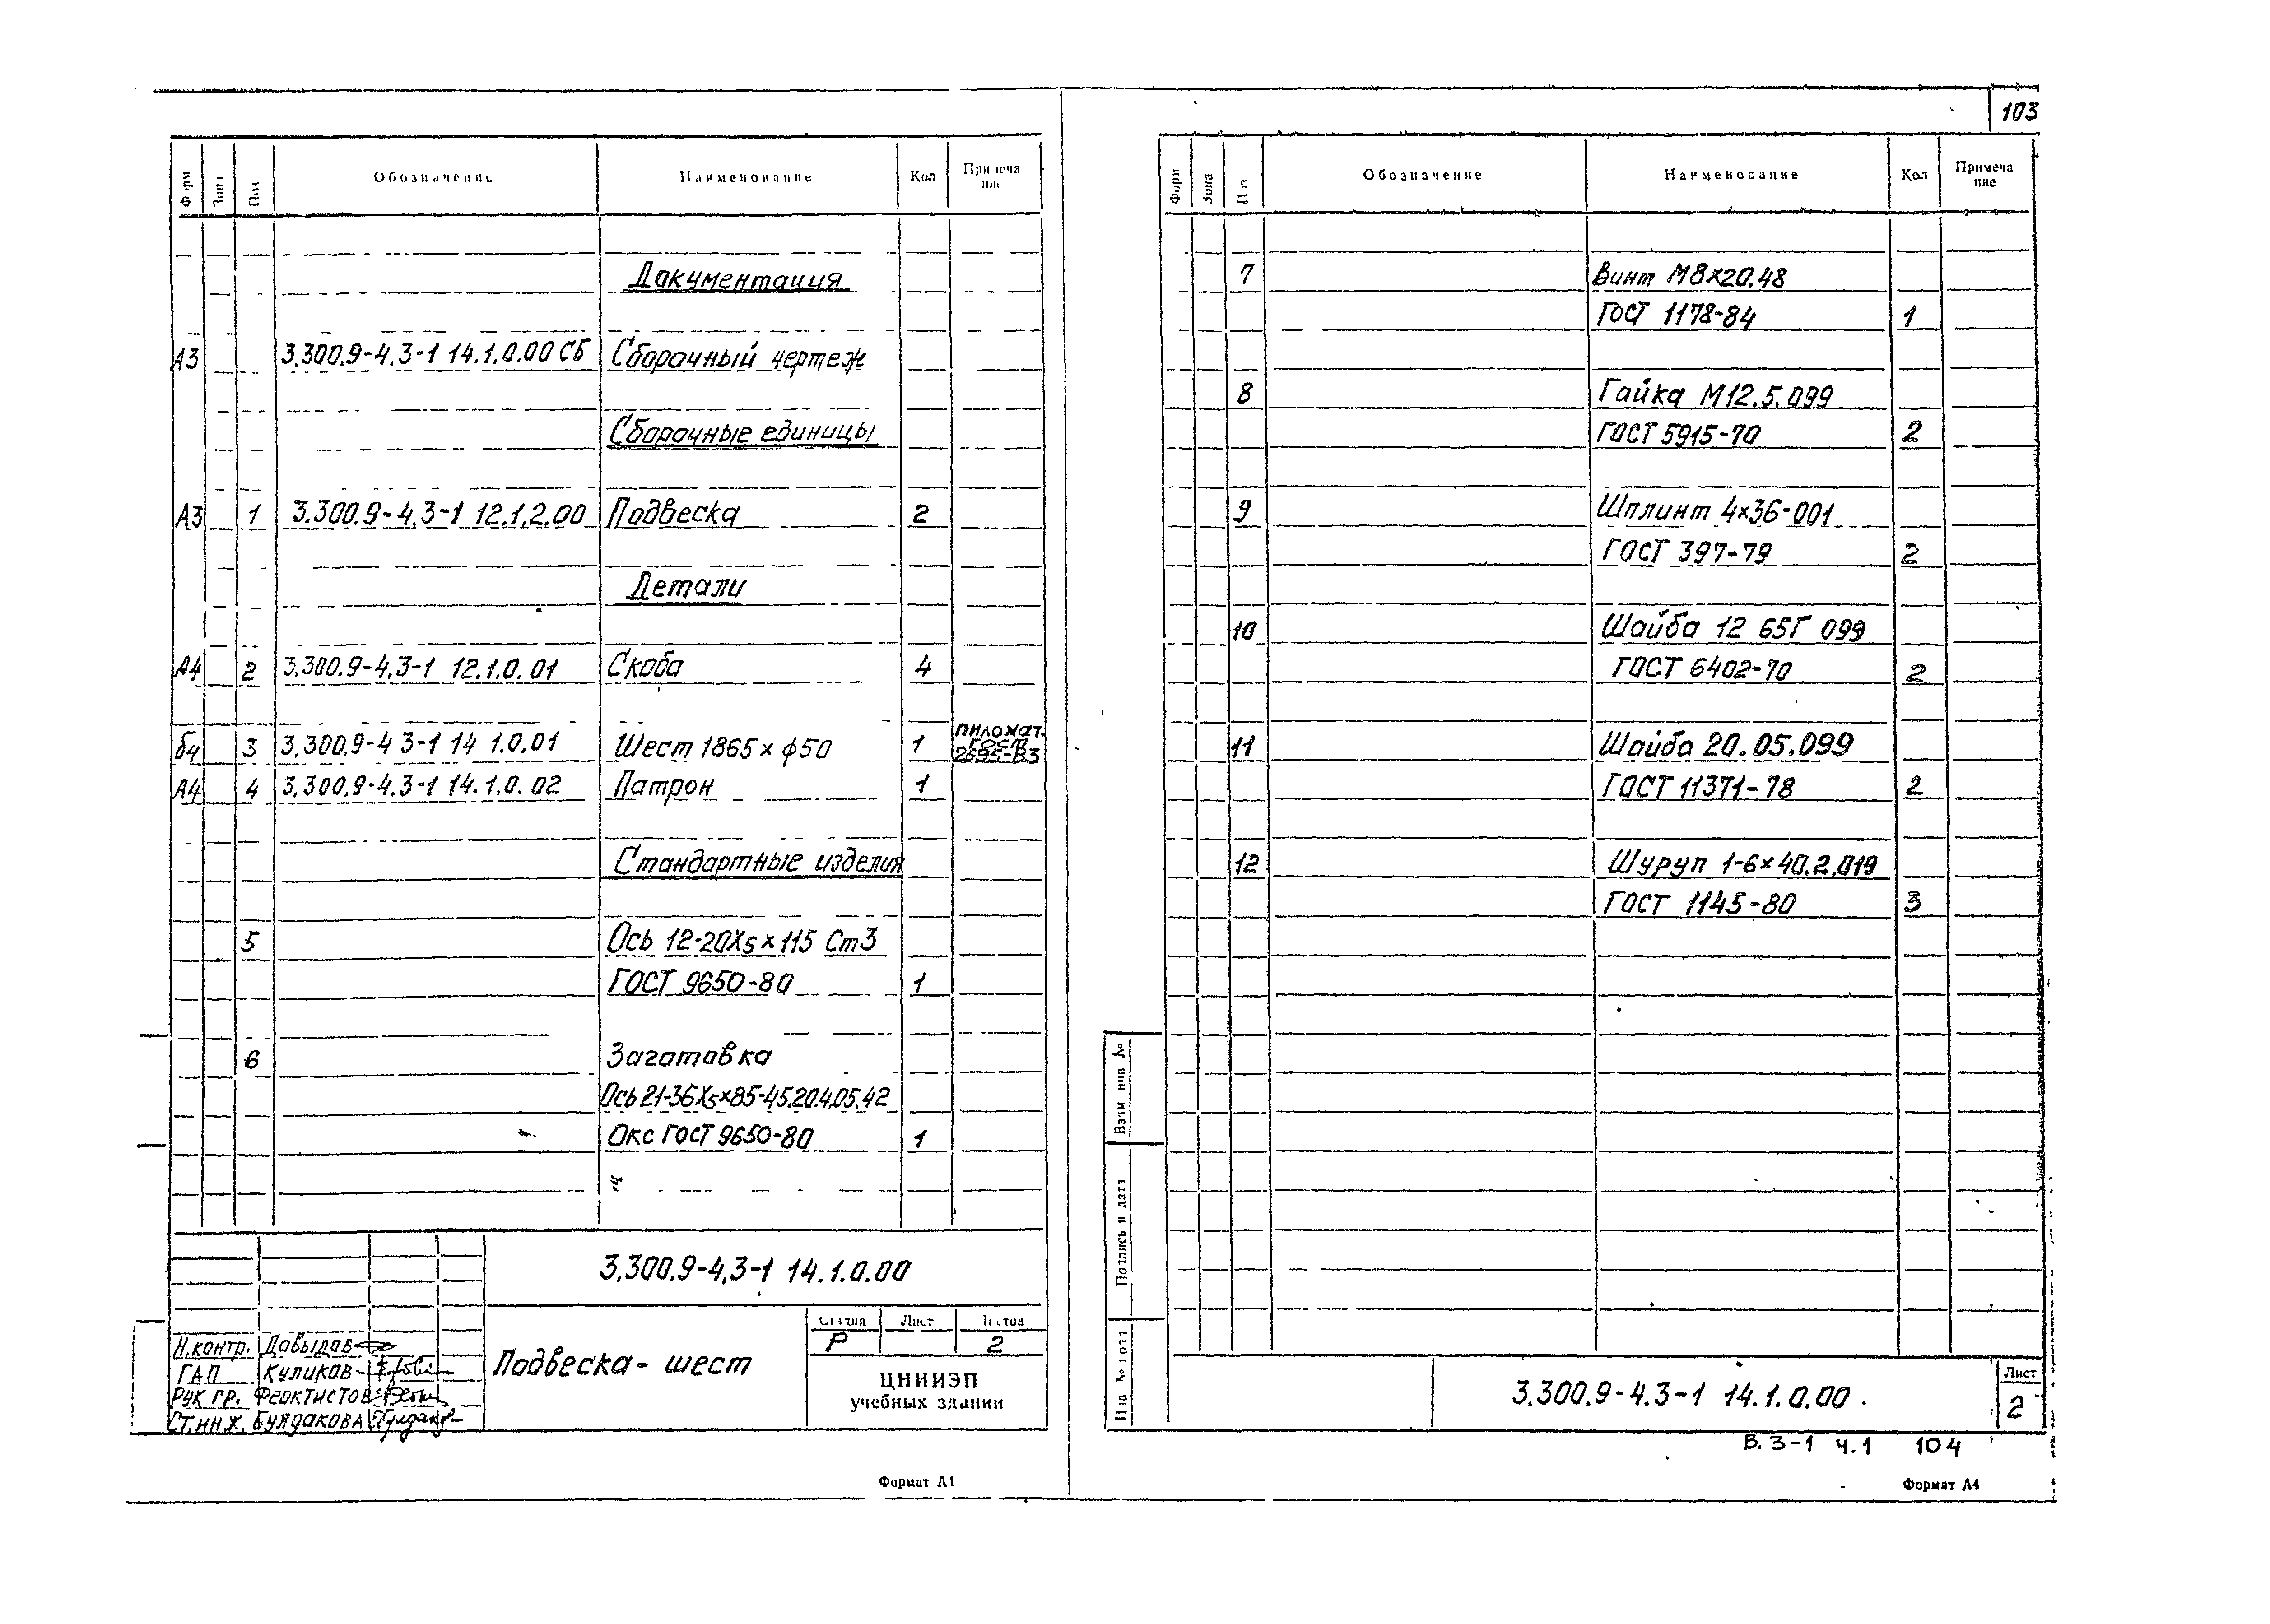 103
Форм Зона Поз Обозначение Наименование Кол Примечание
Документация
А3 3.300.9-4.3-1 14.1.0.00 СБ Сборочный чертеж
Сборочные единицы
А3 1 3.300.9-4.3-1 12.1.2.00 Подвеска 2
Детали
А4 2 3.300.9-4.3-1 12.1.0.01 Скоба 4
пиломат.
ГОСТ
2695-83
б4 3 3.300.9-4 3-1 14 1.0.01 Шест 1865 × ф50 1
А4 4 3.300.9-4.3-1 14.1.0.02 Патрон 1
Стандартные изделия
5 Ось 12-20Х5×115 Ст3
ГОСТ 9650-80 1
6 Заготовка
Ось 21-36Х5×85-45.20.4.05.42
Окс ГОСТ 9650-80 1
3.300.9-4.3-1 14.1.0.00
Подвеска - шест
Стадия Лист Листов
Р 2
ЦНИИЭП
учебных зданий
Н.контр. Давыдов
ГАП Куликов
Рук гр. Феоктистов
Ст.инж. Булдакова
Формат А4
Форм Зона Поз Обозначение Наименование Кол Примеча
ние
7 Винт М8×20.48
ГОСТ 1178-84 1
8 Гайка М12.5.099
ГОСТ 5915-70 2
9 Шплинт 4×36-001
ГОСТ 397-79 2
10 Шайба 12 65Г 099
ГОСТ 6402-70 2
11 Шайба 20.05.099
ГОСТ 11371-78 2
12 Шуруп 1-6×40.2.019
ГОСТ 1145-80 3
Взам инв №
Подпись и дата
Инв № подл
3.300.9-4.3-1 14.1.0.00
Лист
2
В.3-1 ч.1 104
Формат А4